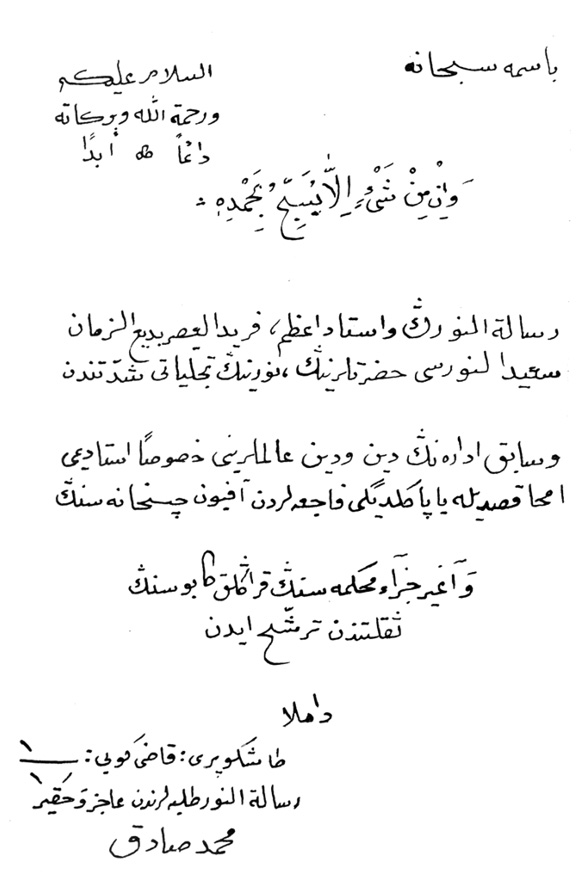 باسمه سبحانه
السلام عليكم
ورحمة الله وبركاته
دائمًا ابدًا
وَاِنْ مِنْ شَىْءٍ اِلَّا يُسَبِّحُ بِحَمْدِهٖ
رسالة النورڭ واستاد اعظم، فريد العصر بديع الزمان
سعيد النورسى حضرتلرينڭ، نورينڭ تجلياتى شدّتندن
وسابق اداره‌نڭ دين ودين عالملرينى خصوصًا استاديمى
امحا قصديله ياپاكلديگى فاجعه‌لردن آفيون جسخانه سنڭ
وَآغير جزآء محكمه سنڭ قراڭلق كابوسنڭ
ثقلتندن ترشّح ايدن
داملا
طاشكوپرى: قاضى كويى: ١
رسالة النور طلبه لرندن عاجز وحقير
محمد صادق